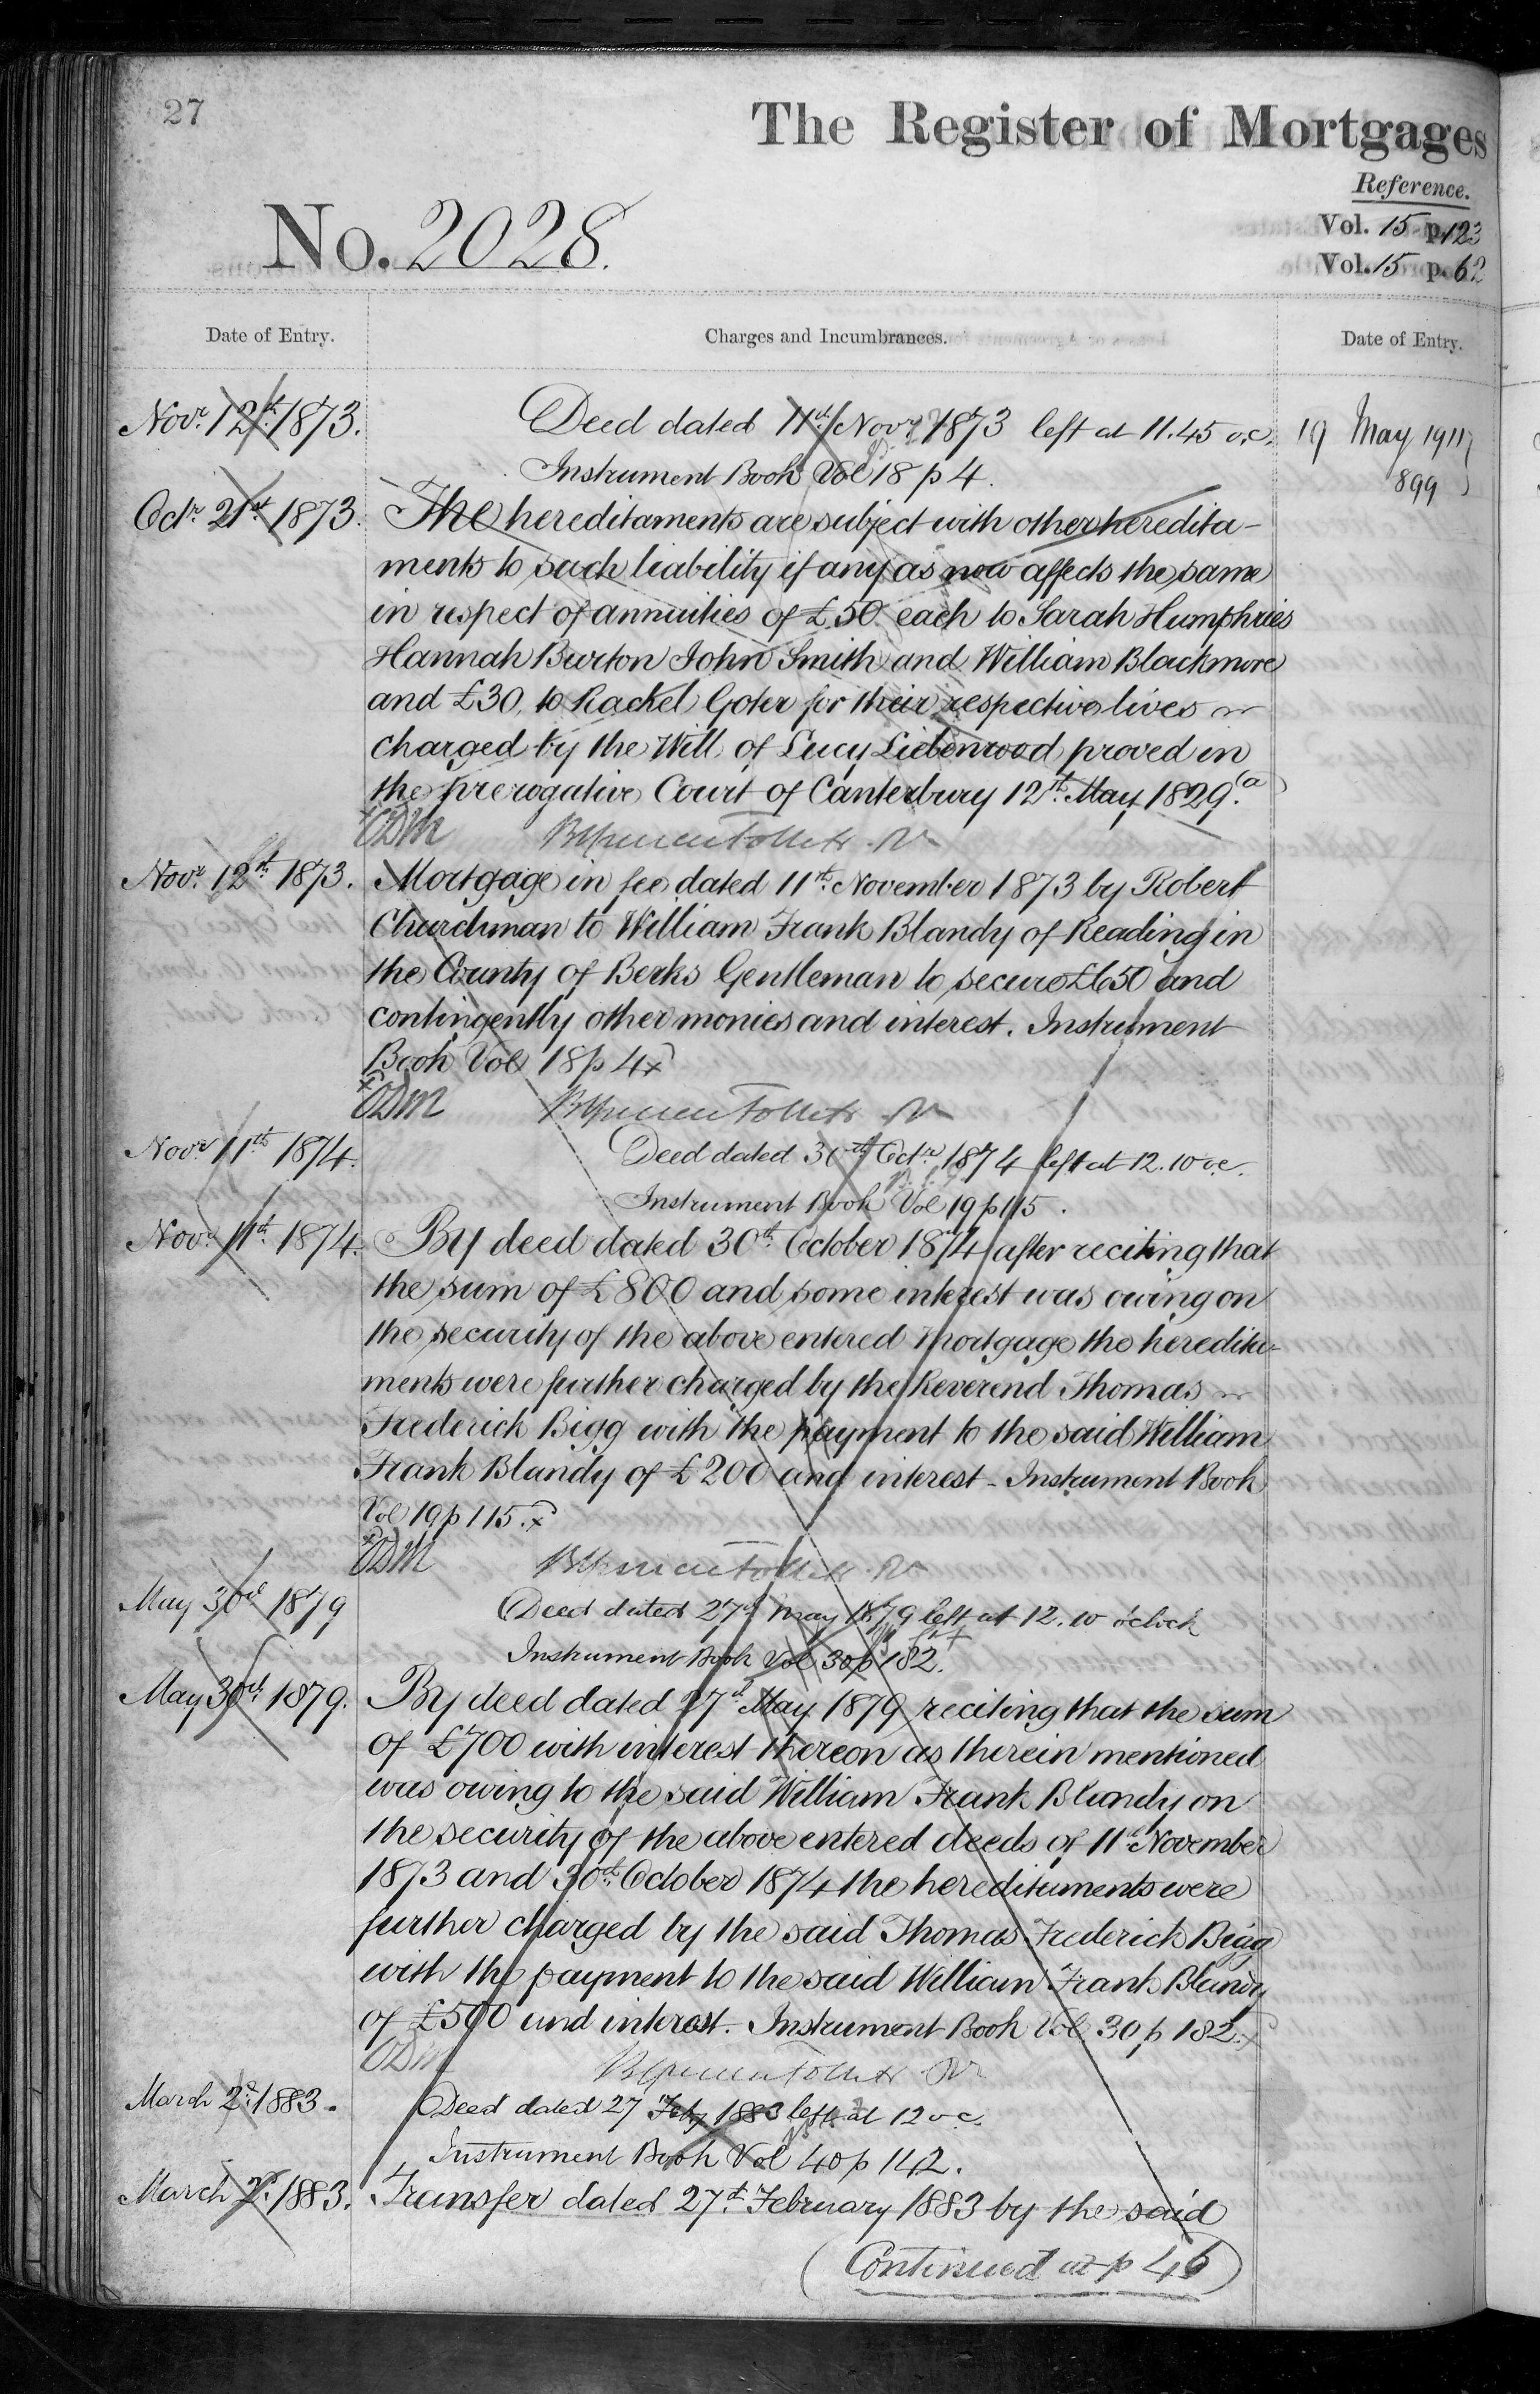 27
The Register of Mortgages
Reference.
No. 2028.
Vol. 15 p. 123
Vol. 15 p. 62
Date of Entry.
Charges and Incumbrances.
Date of Entry.
Novr. 12th 1873.
Deed dated 11th Novr 1873 left at 11.45 o,c,
19 May 1911
Instrument Book Vol 18 p 4.
899
Octr. 21st 1873.
The hereditaments are subject with other heredita-
ments to such liability if any as now affects the same
in respect of annuities of £50 each to Sarah Humphries
Hannah Burton John Smith and William Blackmore
and £30, to Rachel Goter for their respective lives
charged by the Will of Lucy Liebenrood proved in
the prerogative Court of Canterbury 12th May 1829.
Novr. 12th 1873.
Mortgage in fee dated 11th November 1873 by Robert
Churchman to William Frank Blandy of Reading in
the County of Berks Gentleman to secure £650 and
contingently other monies and interest. Instrument
Book Vol 18 p 4 x
Novr 11th 1874.
Deed dated 30th Octr 1874 left at 12.10 o.c.
Instrument Book Vol 19 p 115.
Novr 11th 1874.
By deed dated 30th October 1874 after reciting that
the sum of £800 and some interest was owing on
the security of the above entered Mortgage the heredita-
ments were further charged by the Reverend Thomas
Frederick Bigg with the payment to the said William
Frank Blandy of £200 and interest - Instrument Book
Vol 19 p 115. x
May 30th 1879
Deed dated 27th May 1879 left at 12.10 o'clock
Instrument Book Vol 30 p 182.
May 30th 1879.
By deed dated 27th May 1879 reciting that the sum
of £700 with interest thereon as therein mentioned
was owing to the said William Frank Blandy on
the security of the above entered deeds of 11th November
1873 and 30th October 1874 the hereditaments were
further charged by the said Thomas Frederick Bigg
with the payment to the said William Frank Blandy
of £500 and interest. Instrument Book Vol 30 p 182. x
March 2d. 1883.
Deed dated 27 Feby 1883 left at 12 o c.
Instrument Book Vol 40 p 142.
March 2d. 1883.
Transfer dated 27th February 1883 by the said
(Continued at p 46)